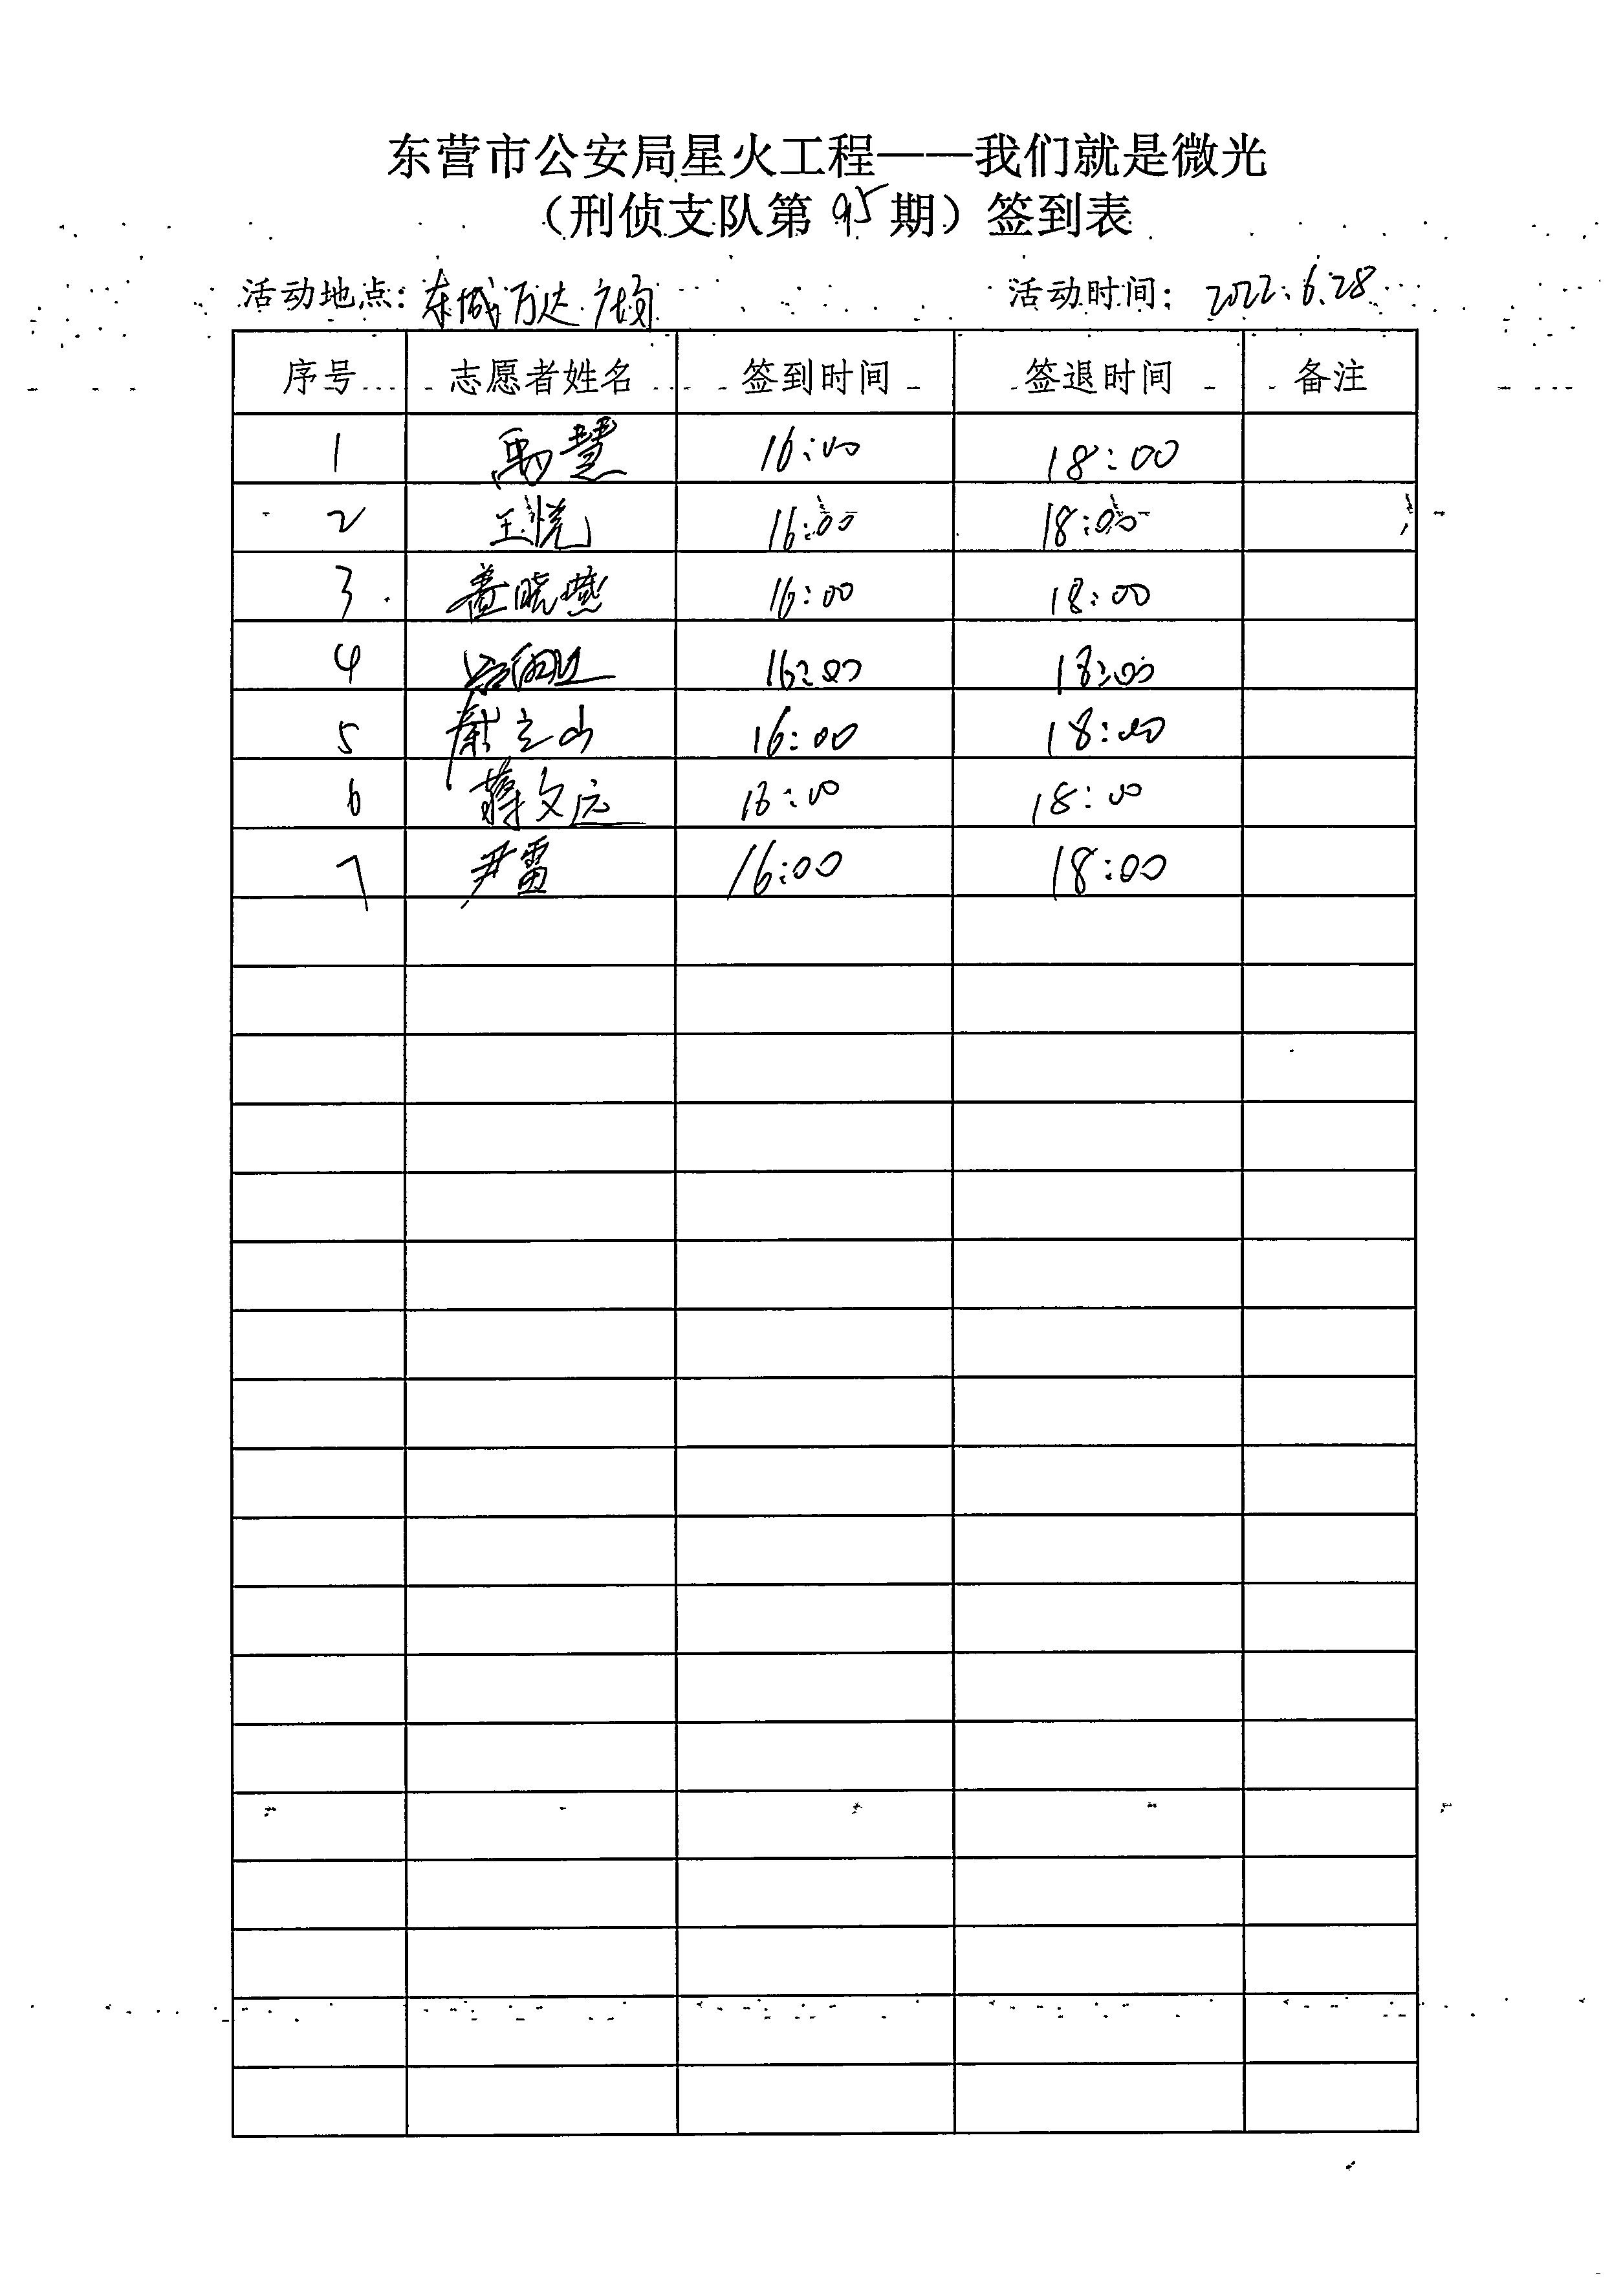 东营市公安局星火工程——我们就是微光
（刑侦支队第95期）签到表
活动地点：东城万达广场 活动时间：2022.6.28
序号 志愿者姓名 签到时间 签退时间 备注
1 禹慧 16:00 18:00
2 王悦 16:00 18:00
3 晓燕 16:00 18:00
4 16:00 18:00
5 立山 16:00 18:00
6 蒋文 16:00 18:00
7 尹雷 16:00 18:00